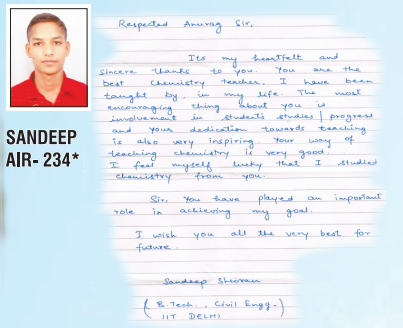 Respected Anurag Sir,
Its my heartfelt and
sincere thanks to you. You are the
best chemistry teacher, I have been
taught by, in my life. The most
encouraging thing about you is
involvement in students studies/progress
and your dedication towards teaching
is also very inspiring Your way of
teaching chemistry is very good.
I feel myself lucky that I studied
chemistry from you.
Sir, You have played an important
role in achieving my goal.
I wish you all the very best for
future.
Sandeep Sheoran
(B.Tech., Civil Engg.)
IIT DELHI
SANDEEP
AIR- 234*